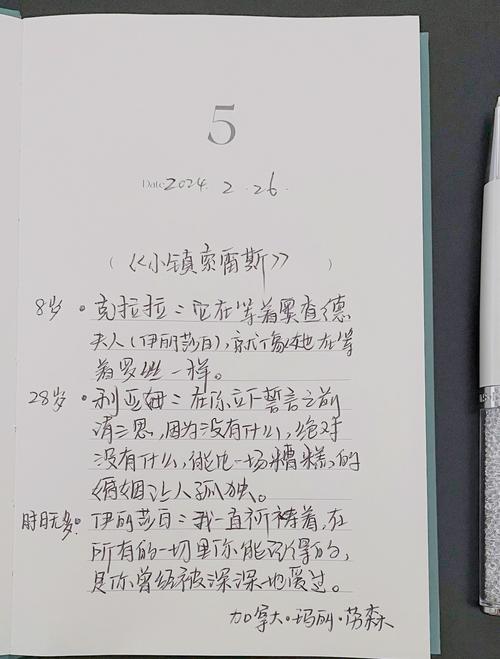 5
Date 2024. 2. 26.
(《小镇索雷斯》)
8岁 • 克拉拉：它在等着奥查德
夫人(伊丽莎白)，就像她在等
着罗丝一样。
28岁 • 利亚姆：在你立下誓言之前
请三思，因为没有什么，绝对
没有什么，能比一场糟糕的
婚姻让人孤独。
时日无多 • 伊丽莎白：我一直祈祷着，在
所有的一切里你能记得的，
是你曾经被深深地爱过。
加拿大·玛丽·劳森